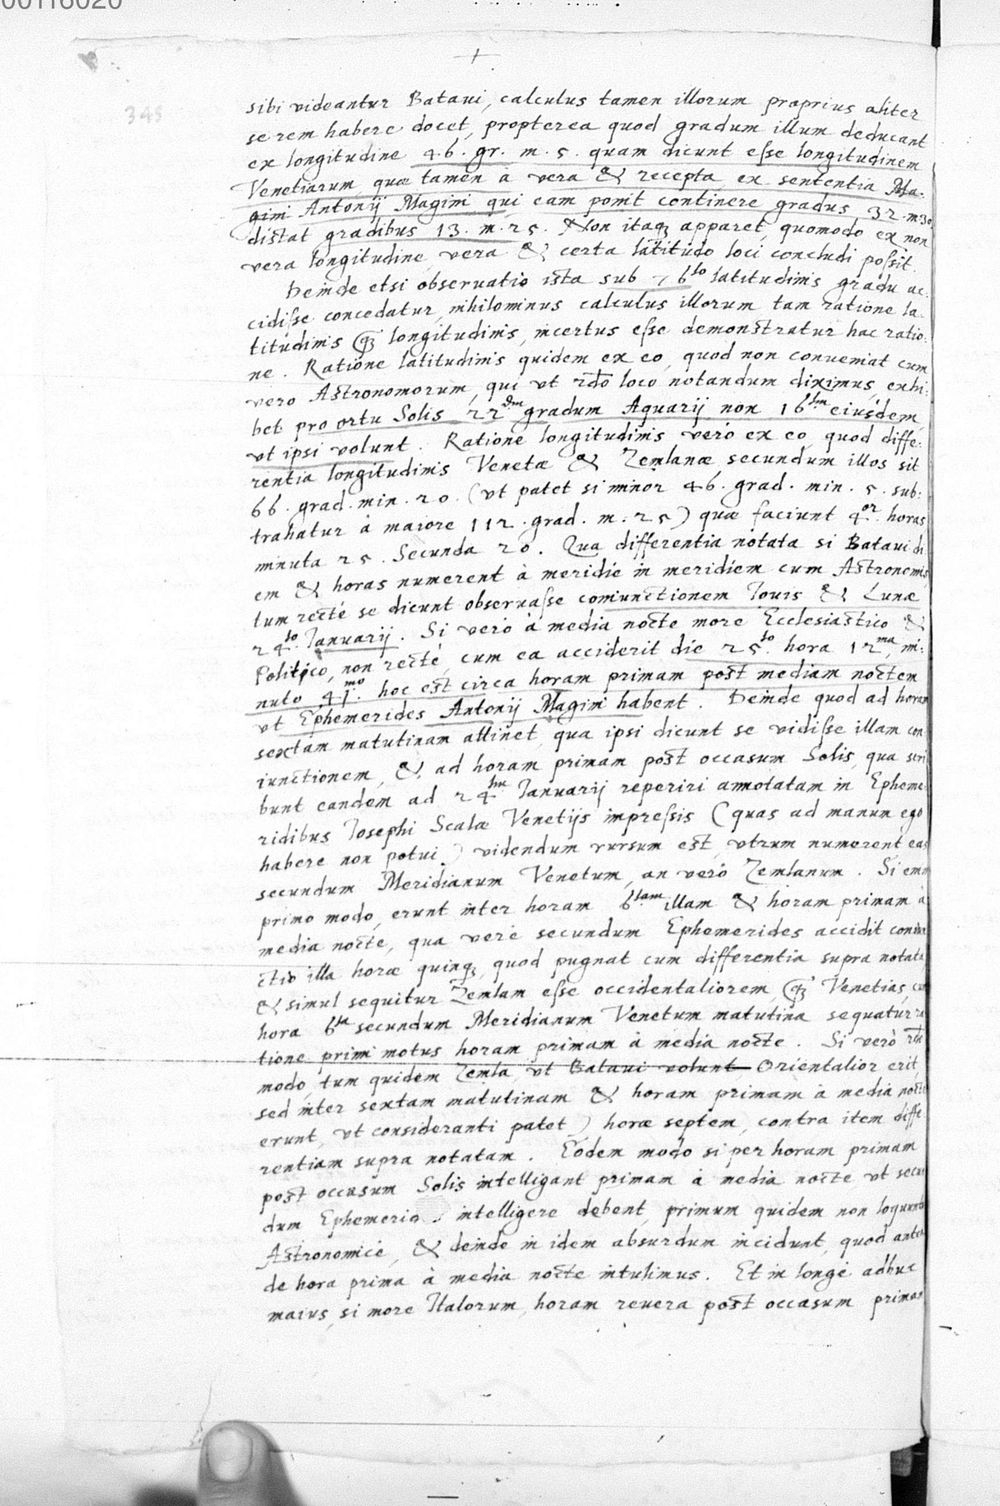 00116020
345
sibi videantur Bataui, calculus tamen illorum proprius aliter
se rem habere docet, propterea quod gradum illum deducant
ex longitudine 46. gr. m. 5. quam dicunt esse longitudinem
Venetiarum, quæ tamen à vera & recepta, ex sententia Ma-
gini Antonij Magini qui eam ponit continere gradus 32. m. 30
distat gradibus 13. m. 25. Non itaq; apparet quomodo ex non
vera longitudine, vera & certa latitudo loci concludi possit.
Deinde etsi observatio ista sub 76to latitudinis gradu ac-
cidisse concedatur, nihilominus calculus illorum tam ratione la-
titudinis q̃ longitudinis, incertus esse demonstratur hac ratio-
ne. Ratione latitudinis quidem ex eo, quod non conueniat cum
vero Astronomorum, qui vt 2do loco notandum diximus, exhi-
bet pro ortu Solis 22dm gradum Aquarij non 16tm eiusdem
vt ipsi volunt. Ratione longitudinis verò ex eo, quod diffe-
rentia longitudinis Venetæ & Zemlanæ secundum illos sit
66. grad. min. 20. (vt patet si minor 46. grad. min. 5. sub-
trahatur à maiore 112. grad. m. 25) quæ faciunt 4or. horas
minuta 25. Secunda 20. Qua differentia notata si Bataui di
em & horas numerent à meridie in meridiem cum Astronomis
tum rectè se dicunt observasse coniunctionem Iouis & Lunæ
24to. Ianuarij. Si verò à media nocte more Ecclesiastico &
Politico, non rectè, cum ea acciderit die 25to. hora 12ma, mi-
nuto 41mo. hoc est circa horam primam post mediam noctem
vt Ephemerides Antonij Magini habent. Deinde quod ad horam
sextam matutinam attinet, qua ipsi dicunt se vidisse illam con
iunctionem, & ad horam primam post occasum Solis, qua scri
bunt eandem ad 24tm Ianuarij reperiri annotatam in Epheme
ridibus Iosephi Scalæ Venetijs impressis (quas ad manum ego
habere non potui) videndum rursum est, vtrum numerent eas
secundum Meridianum Venetum, an verò Zemlanum. Si enim
primo modo, erunt inter horam 6tam illam & horam primam à
media nocte, qua verè secundum Ephemerides accidit coniun
ctio illa horæ quinq;, quod pugnat cum differentia supra notata
& simul sequitur Zemlam esse occidentaliorem, q̃ Venetias, cum
hora 6ta secundum Meridianum Venetum matutina sequatur ra
tione primi motus horam primam à media nocte. Si verò 2do
modo, tum quidem Zemla, vt Bataui volunt Orientalior erit,
sed inter sextam matutinam & horam primam à media nocte
erunt, vt consideranti patet) horæ septem, contra item diffe
rentiam supra notatam. Eodem modo si per horam primam
post occasum Solis intelligant primam à media nocte vt secun
dum intelligere debent, primum quidem non loquuntur
Astronomicè, & deinde in idem absurdum incidunt, quod antea
de hora prima à media nocte intulimus. Et in longè adhuc
maius, si more Italorum, horam reuera post occasum primam